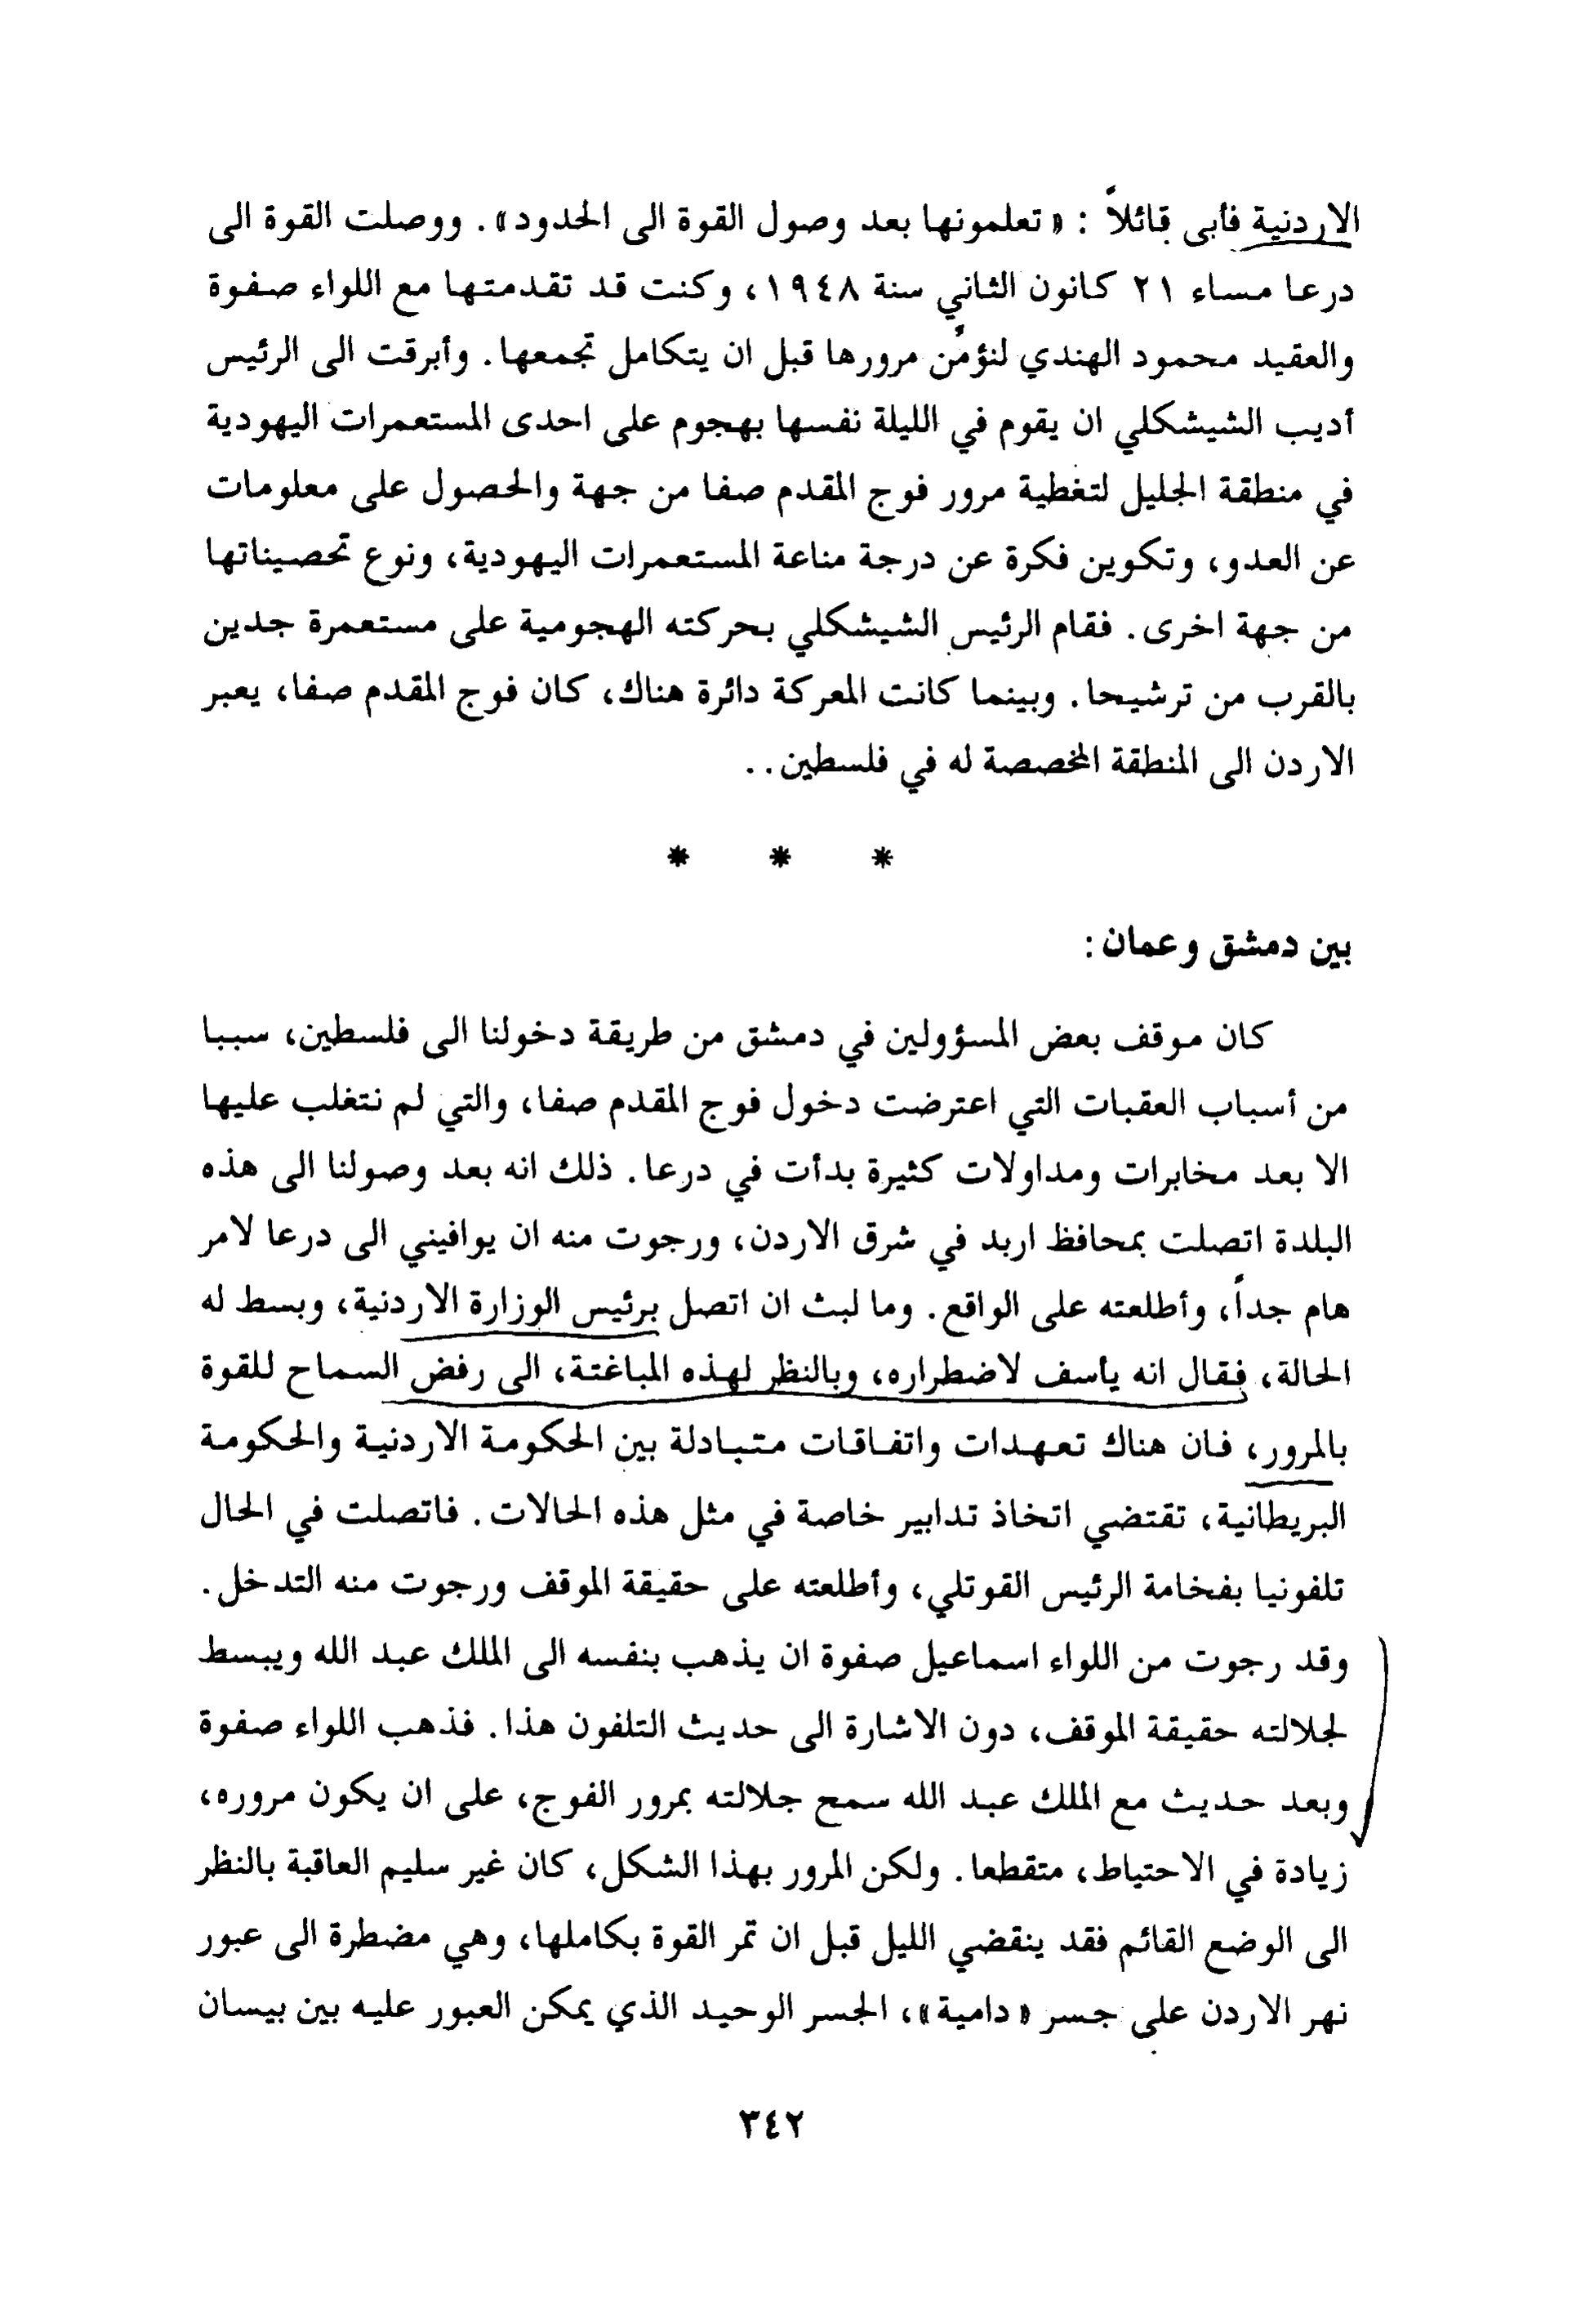 الاردنية فأبى قائلاً : «تعلمونها بعد وصول القوة الى الحدود». ووصلت القوة الى
درعا مساء ٢١ كانون الثاني سنة ١٩٤٨، وكنت قد تقدمتها مع اللواء صفوة
والعقيد محمود الهندي لنؤمّن مرورها قبل ان يتكامل تجمعها. وأبرقت الى الرئيس
أديب الشيشكلي ان يقوم في الليلة نفسها بهجوم على احدى المستعمرات اليهودية
في منطقة الجليل لتغطية مرور فوج المقدم صفا من جهة والحصول على معلومات
عن العدو، وتكوين فكرة عن درجة مناعة المستعمرات اليهودية، ونوع تحصيناتها
من جهة اخرى. فقام الرئيس الشيشكلي بحركته الهجومية على مستعمرة جدين
بالقرب من ترشيحا. وبينما كانت المعركة دائرة هناك، كان فوج المقدم صفا، يعبر
الاردن الى المنطقة المخصصة له في فلسطين..
* * *
بين دمشق وعمان :
كان موقف بعض المسؤولين في دمشق من طريقة دخولنا الى فلسطين، سببا
من أسباب العقبات التي اعترضت دخول فوج المقدم صفا، والتي لم نتغلب عليها
الا بعد مخابرات ومداولات كثيرة بدأت في درعا. ذلك انه بعد وصولنا الى هذه
البلدة اتصلت بمحافظ اربد في شرق الاردن، ورجوت منه ان يوافيني الى درعا لامر
هام جداً، وأطلعته على الواقع. وما لبث ان اتصل برئيس الوزارة الاردنية، وبسط له
الحالة، فقال انه يأسف لاضطراره، وبالنظر لهذه المباغتة، الى رفض السماح للقوة
بالمرور، فان هناك تعهدات واتفاقات متبادلة بين الحكومة الاردنية والحكومة
البريطانية، تقتضي اتخاذ تدابير خاصة في مثل هذه الحالات. فاتصلت في الحال
تلفونيا بفخامة الرئيس القوتلي، وأطلعته على حقيقة الموقف ورجوت منه التدخل.
وقد رجوت من اللواء اسماعيل صفوة ان يذهب بنفسه الى الملك عبد الله ويبسط
لجلالته حقيقة الموقف، دون الاشارة الى حديث التلفون هذا. فذهب اللواء صفوة
وبعد حديث مع الملك عبد الله سمح جلالته بمرور الفوج، على ان يكون مروره،
زيادة في الاحتياط، متقطعا. ولكن المرور بهذا الشكل، كان غير سليم العاقبة بالنظر
الى الوضع القائم فقد ينقضي الليل قبل ان تمر القوة بكاملها، وهي مضطرة الى عبور
نهر الاردن على جسر «دامية»، الجسر الوحيد الذي يمكن العبور عليه بين بيسان
٣٤٢